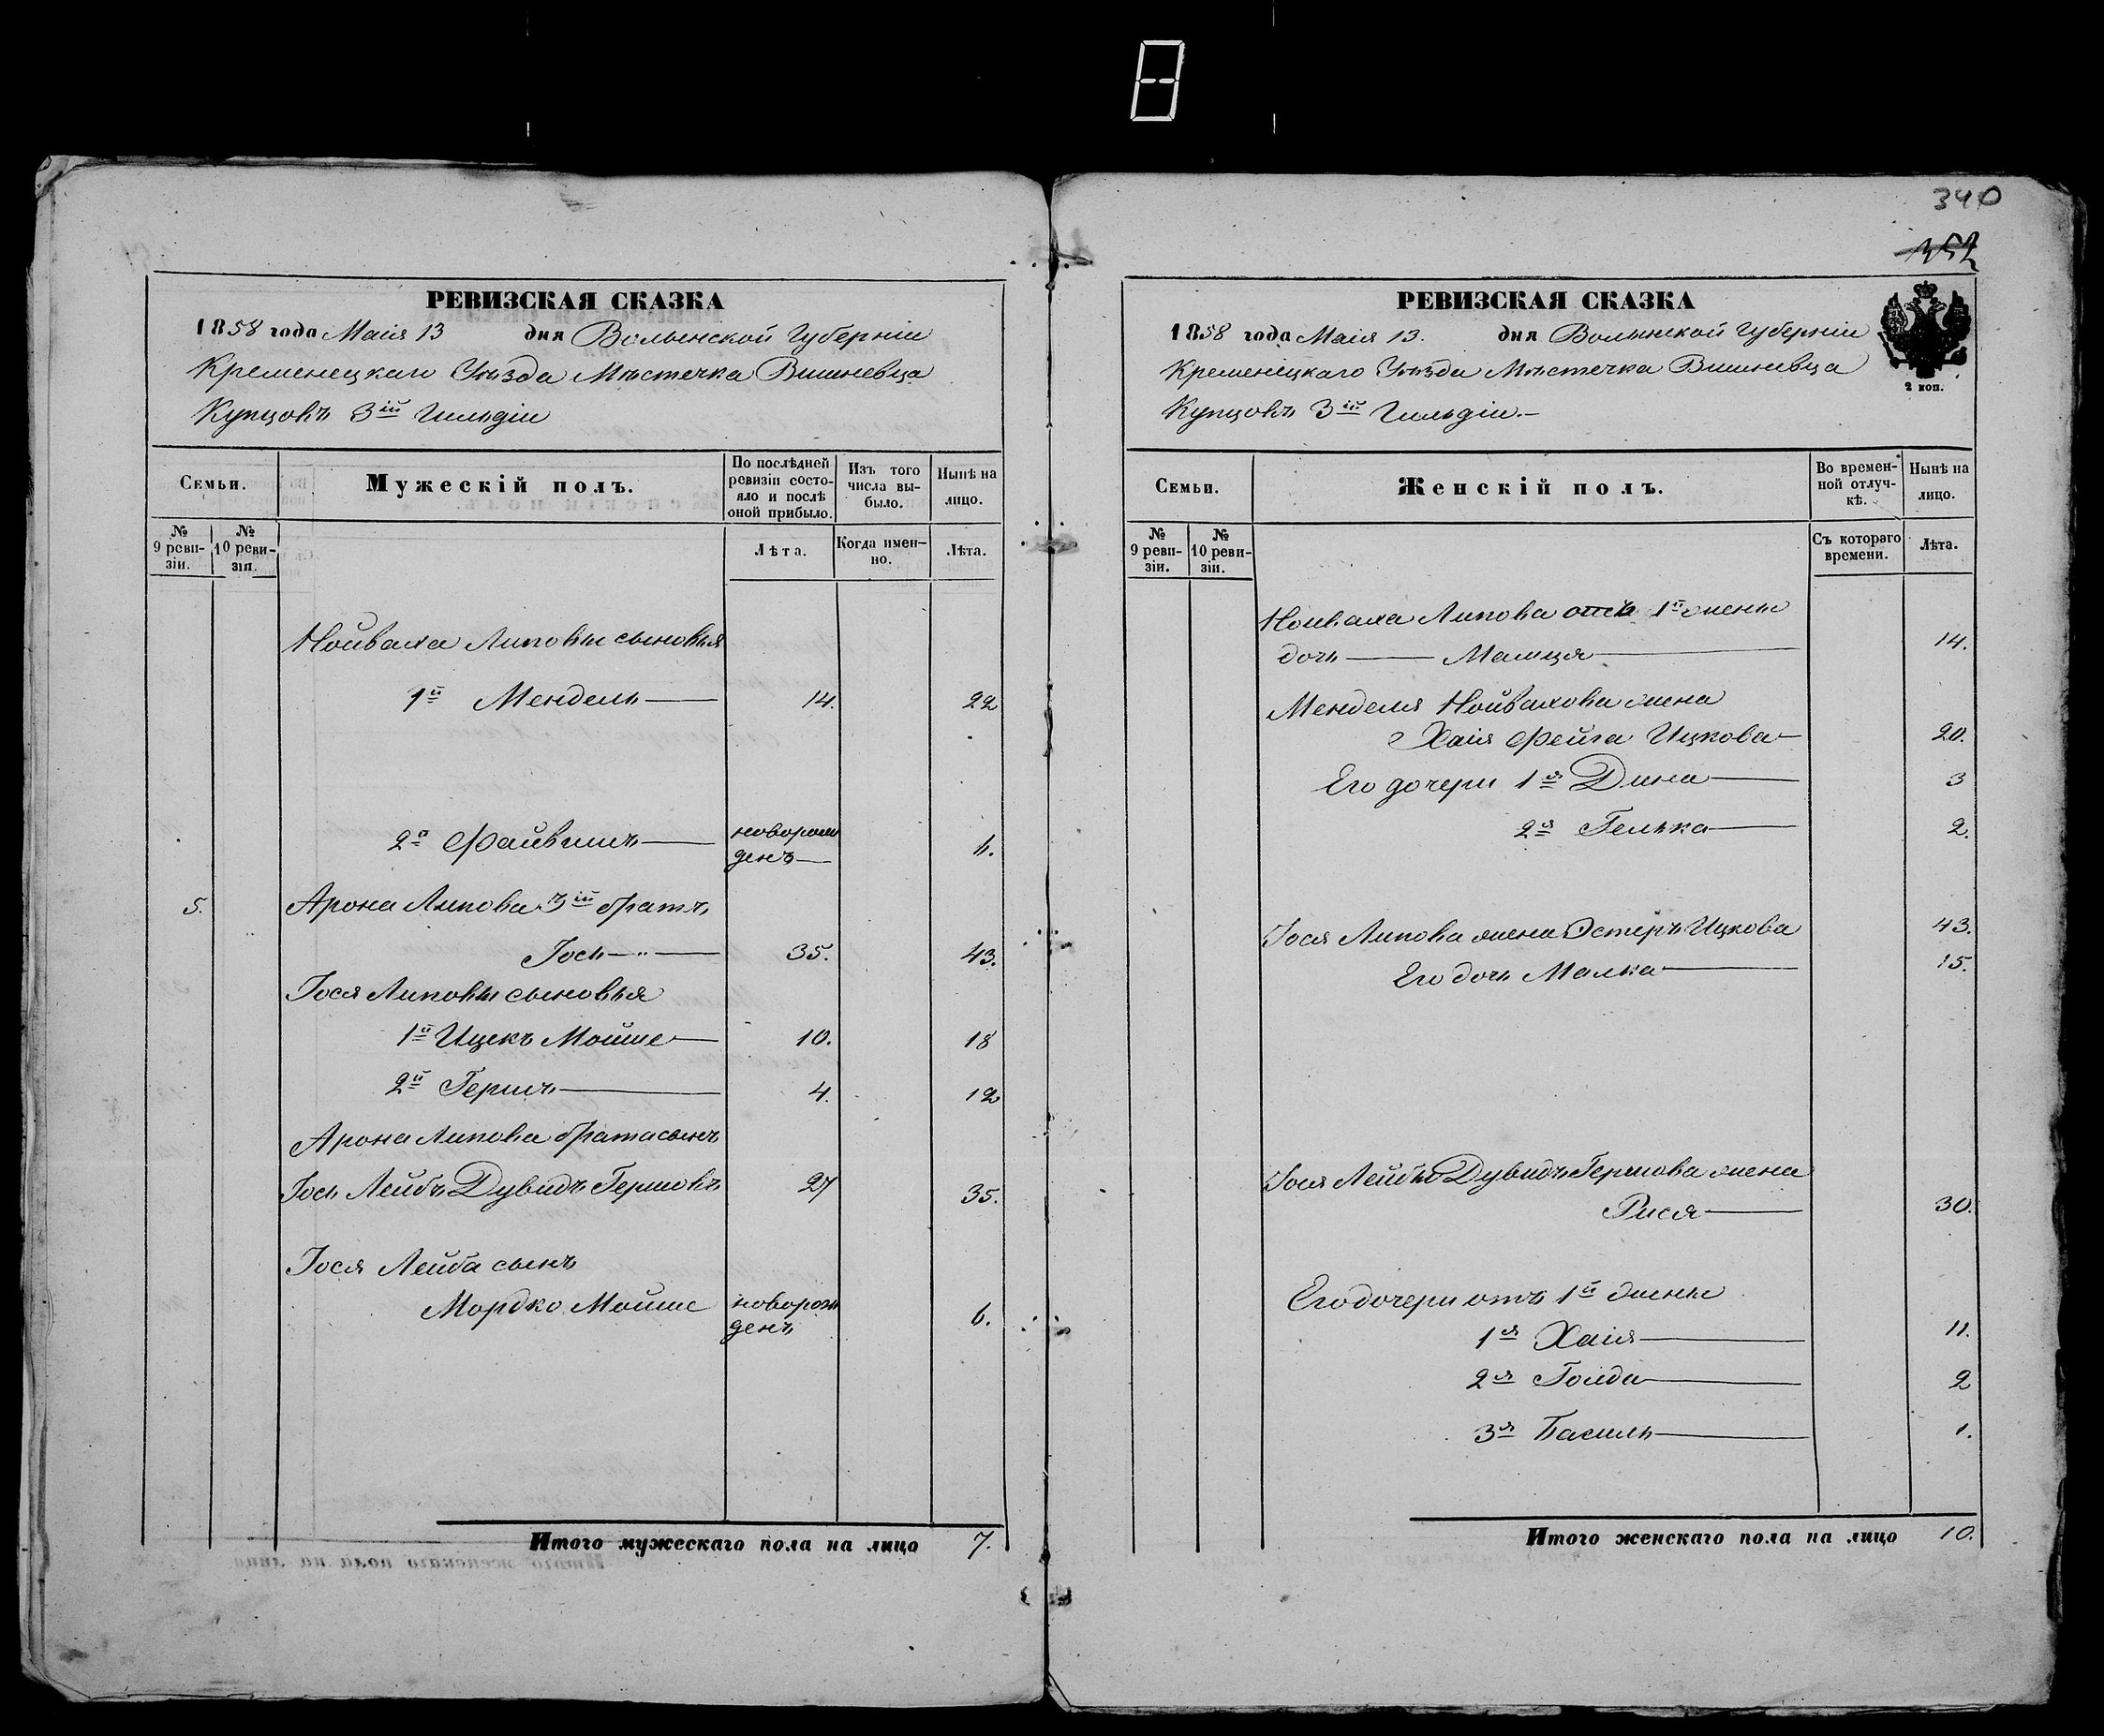 340
352
РЕВИЗСКАЯ СКАЗКА
1858 года Маія 13 дня Волынской Губерніи
Кременецкаго Уѣзда Мѣстечка Вишневца
Купцовъ 3ій Гильдіи
Семьи.
Мужескій полъ.
По послѣдней ревизіи состояло и послѣ оной прибыло.
Изъ того числа выбыло.
Нынѣ на лицо.
№ 9 ревизіи.
№ 10 ревизіи.
Лѣта.
Когда именно.
Лѣта.
Нойваха Липовы сыновья
1й Мендель 14. 22
2й Файвишъ новорожденъ 6.
5. Арона Липова 3ій братъ
Іось 35. 43.
Іося Липовы сыновья
1й Ицекъ Мойше 10. 18
2й Гершъ 4. 12
Арона Липова брата сынъ
Іось Лейбъ Дувидъ Гершовъ 27 35.
Іося Лейба сынъ
Мордко Мойше новорожденъ 6.
Итого мужескаго пола на лицо 7.
РЕВИЗСКАЯ СКАЗКА
1858 года Маія 13. дня Волынской Губерніи
Кременецкаго Уѣзда Мѣстечка Вишневца
Купцовъ 3ій Гильдіи.
2 коп.
Семьи.
Женскій полъ.
Во временной отлучкѣ.
Нынѣ на лицо.
№ 9 ревизіи.
№ 10 ревизіи.
Съ котораго времени.
Лѣта.
Нойваха Липова отъ 1й жены
дочь Малця 14.
Менделя Нойвахова жена
Хаія Фейга Ицкова 20.
Его дочери 1я Дина 3
2я Гелька 2.
Іося Липова жена Эстеръ Ицкова 43.
Его дочь Малка 15.
Іося Лейбы Дувидъ Гершова жена
Рися 30.
Его дочери отъ 1й жены
1я Хаія 11.
2я Голда 2
3я Басиль 1.
Итого женскаго пола на лицо 10.